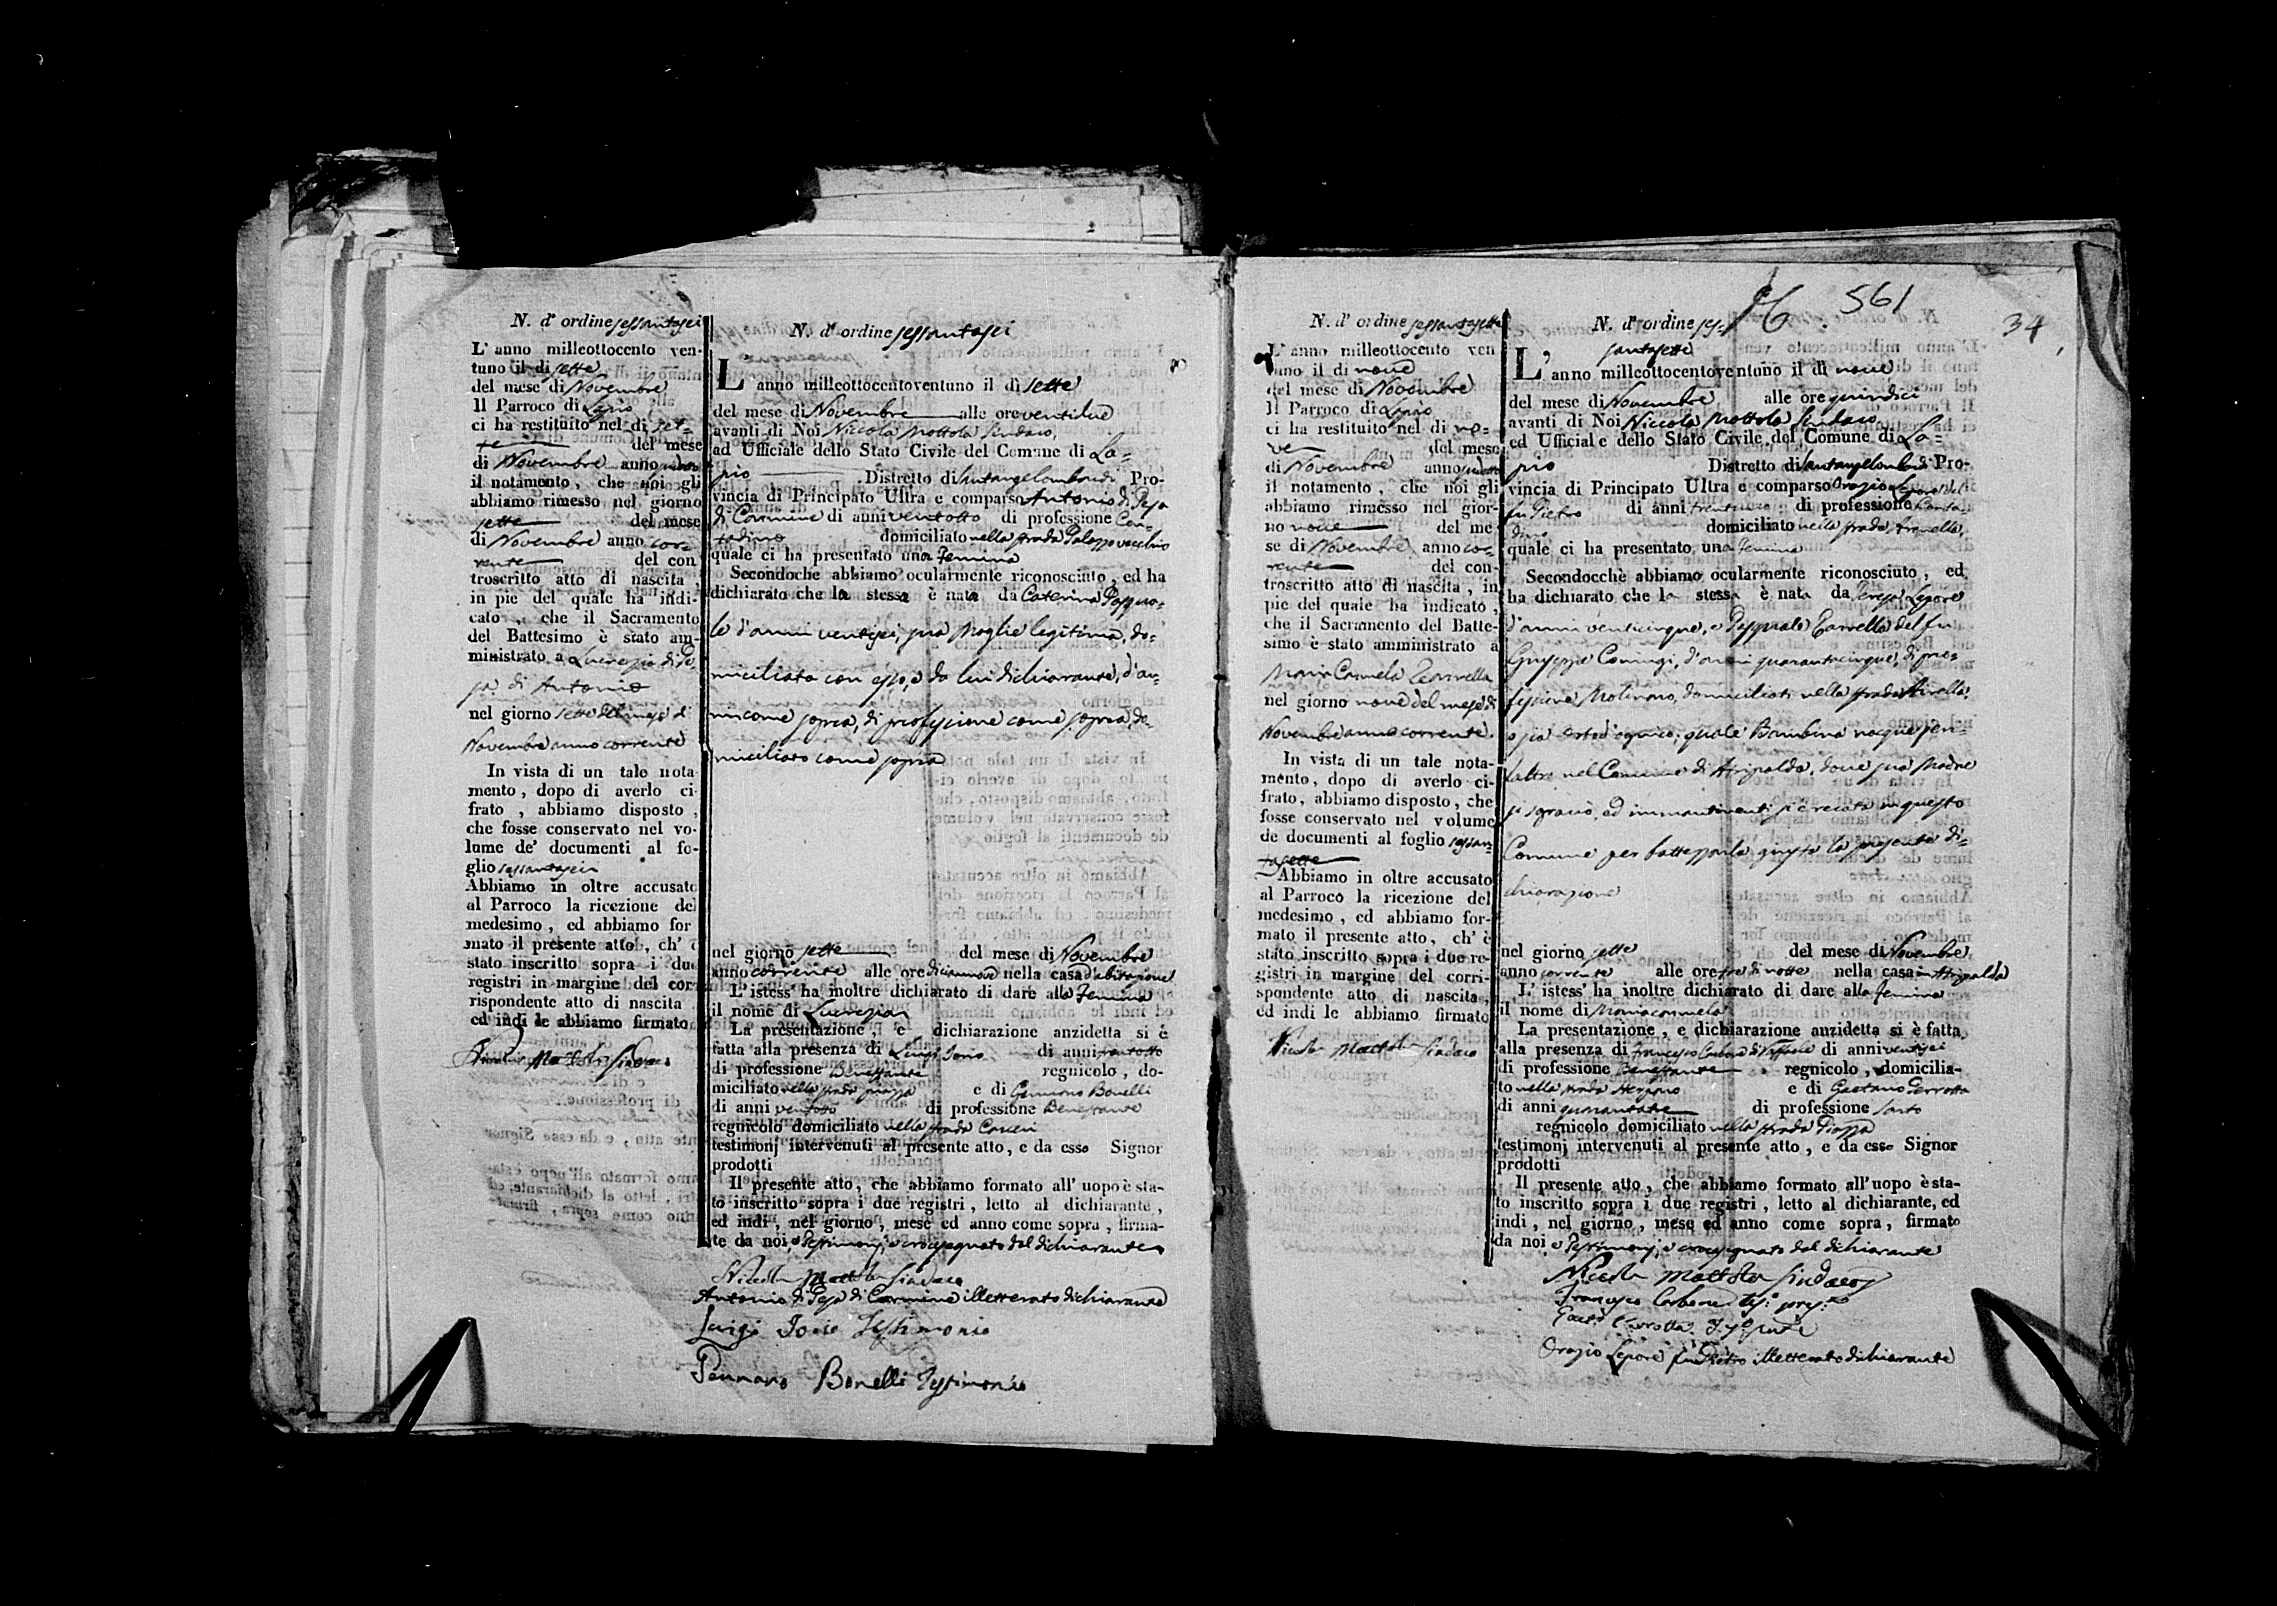 N. d' ordine sessantasei
L' anno milleottocento ven-
tuno il di sette
del mese di Novembre
Il Parroco di Lapio
ci ha restituito nel di set-
te del mese
di Novembre anno
il notamento, che noi gli
abbiamo rimesso nel giorno
sette del mese
di Novembre anno cor-
rente del con
troscritto atto di nascita,
in piè del quale ha indi-
cato, che il Sacramento
del Battesimo è stato am-
ministrato a Lucrezia di Pe-
sa di Antonio
nel giorno sette del mese di
Novembre anno corrente
In vista di un tale nota-
mento, dopo di averlo ci-
frato, abbiamo disposto,
che fosse conservato nel vo-
lume de' documenti al fo-
glio sessantasei
Abbiamo in oltre accusato
al Parroco la ricezione del
medesimo, ed abbiamo for
mato il presente atto, ch' è
stato inscritto sopra i due
registri in margine del cor
rispondente atto di nascita
ed indi le abbiamo firmato
Nicola Mottola Sindaco
N. d' ordine sessantasei
L' anno milleottocentoventuno il dì sette
del mese di Novembre alle ore ventidue
avanti di Noi Nicola Mottola Sindaco,
ad Ufficiale dello Stato Civile del Comune di La-
pio Distretto di Santangelombardi Pro-
vincia di Principato Ultra e comparso Antonio di Pesa
di Carmine di anni ventotto di professione Con-
tadino domiciliato nella strada Palazzo vecchio
quale ci ha presentato una Femina
Secondochè abbiamo ocularmente riconosciuto, ed ha
dichiarato che la stessa è nata da Caterina Pasqua-
le d'anni ventisei, sua Moglie legitima, do-
miciliata con esso, e da lui dichiarante, d'an-
ni come sopra, di professione come sopra, do-
miciliato come sopra
nel giorno sette del mese di Novembre
anno corrente alle ore diciannove nella casa d'abitazione
L' istess' ha inoltre dichiarato di dare alla Femina
il nome di Lucrezia
La presentazione, e dichiarazione anzidetta si è
fatta alla presenza di Luigi Iorio di anni
di professione Benestante regnicolo, do-
miciliato nella strada piazza e di Gennaro Bonelli
di anni ventotto di professione Benestante
regnicolo domiciliato nella strada
testimonj intervenuti al presente atto, e da esso Signor
prodotti
Il presente atto, che abbiamo formato all' uopo è sta-
to inscritto sopra i due registri, letto al dichiarante,
ed indi, nel giorno, mese ed anno come sopra, firma-
te da noi, e Testimonj, e crocesegnato dal dichiarante
Nicola Mottola Sindaco
Antonio di Pesa di Carmine illetterato dichiarante
Luigi Iorio Testimonio
Gennaro Bonelli Testimonio
561
34
N. d' ordine sessantasette
L' anno milleottocento ven
tuno il di nove
del mese di Novembre
Il Parroco di Lapio
ci ha restituito nel di no-
ve del mese
di Novembre anno
il notamento, che noi gli
abbiamo rimesso nel gior-
no nove del me-
se di Novembre anno co-
rrente del con-
troscritto atto di nascita, in
piè del quale ha indicato,
che il Sacramento del Batte-
simo è stato amministrato a
Maria Carmela Tarrella
nel giorno nove del mese di
Novembre anno corrente.
In vista di un tale nota-
mento, dopo di averlo ci-
frato, abbiamo disposto, che
fosse conservato nel volume
de documenti al foglio sessan-
tasette
Abbiamo in oltre accusato
al Parroco la ricezione del
medesimo, ed abbiamo for-
mato il presente atto, ch' è
stato inscritto sopra i due re-
gistri in margine del corri-
spondente atto di nascita,
ed indi le abbiamo firmato
Nicola Mottola Sindaco
N. d' ordine ses-
santasette
L' anno milleottocentoventuno il dì nove
del mese di Novembre alle ore quindici
avanti di Noi Niccola Mottola Sindaco
ed Ufficiale dello Stato Civile del Comune di La-
pio Distretto di Santangelombardi Pro-
vincia di Principato Ultra e comparso Orazio Lepore del
fu Pietro di anni di professione Conta-
dino domiciliato nella strada Aranella,
quale ci ha presentato una Femina
Secondocchè abbiamo ocularmente riconosciuto, ed
ha dichiarato che la stessa è nata da Teresa Lepore
d'anni venticinque, e Pasquale Tarrella del fu
Giuseppe Coniugi, d'anni quarantacinque, di pro-
fessione Molinaro, domiciliati nella strada
quale Bambina nacque per-
l'altro nel Comune di Atripalda, dove sua Madre
si sgravò, ed immantinenti s'è recata in questo
Comune per battezzarla giusta la presente di-
chiarazione
nel giorno sette del mese di Novembre
anno corrente alle ore tre di notte nella casa in Atripalda
L' istess' ha inoltre dichiarato di dare alla Femina
il nome di Mariacarmela
La presentazione, e dichiarazione anzidetta si è fatta
alla presenza di Francesco Carbone di anni ventisei
di professione Benestante regnicolo, domicilia-
to nella strada e di Gaetano Carrotta
di anni quarantatre di professione Sarto
regnicolo domiciliato nella strada Piazza
testimonj intervenuti al presente atto, e da esso Signor
prodotti
Il presente atto, che abbiamo formato all'uopo è sta-
to inscritto sopra i due registri, letto al dichiarante, ed
indi, nel giorno, mese ed anno come sopra, firmato
da noi e Testimonj, e crocesegnato dal dichiarante
Nicola Mottola Sindaco
Francesco Carbone
Orazio Lepore fu Pietro illetterato dichiarante